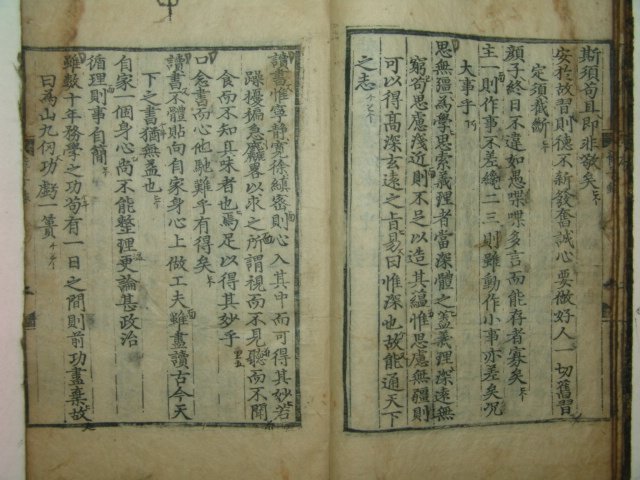 斯須苟且即非敬矣
安於故習則德不新發奮誠心要做好人一切舊習
定須截斷
顔子終日不違如愚喋喋多言而能存者寡矣
主一則作事不差纔二三則雖動作小事亦差矣况
大事乎
思無疆爲學思索義理者當深體之盖義理深遠無
窮苟思慮淺近則不足以造其蘊惟思慮無疆則
可以得高深玄遠之旨易曰惟深也故能通天下
之志
讀書惟寧静寛徐縝密則心入其中而可得其妙若
躁擾褊急麤畧以求之所謂視而不見聽而不聞
食而不知其味者也焉足以得其妙乎
口念書而心他馳難乎有得矣
讀書不體貼向自家身心上做工夫雖盡讀古今天
下之書猶無益也
自家一個身心尚不能整理更論甚政治
循理則事自簡
雖數十年務學之功苟有一日之間則前功盡棄故
曰爲山九仞功虧一簣